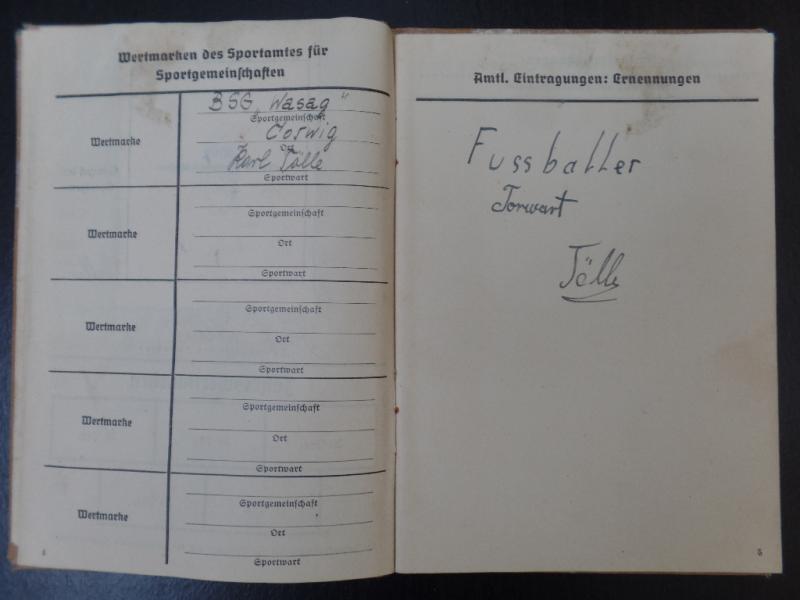 Wertmarken des Sportamtes für
Sportgemeinschaften
BSG „Wasag"
Wertmarke
Sportgemeinschaft
Coswig
Ort
Karl Tölle
Sportwart
Wertmarke
Sportgemeinschaft
Ort
Sportwart
Wertmarke
Sportgemeinschaft
Ort
Sportwart
Wertmarke
Sportgemeinschaft
Ort
Sportwart
Wertmarke
Sportgemeinschaft
Ort
Sportwart
4
Amtl. Eintragungen: Ernennungen
Fussballer
Torwart
Tölle
5